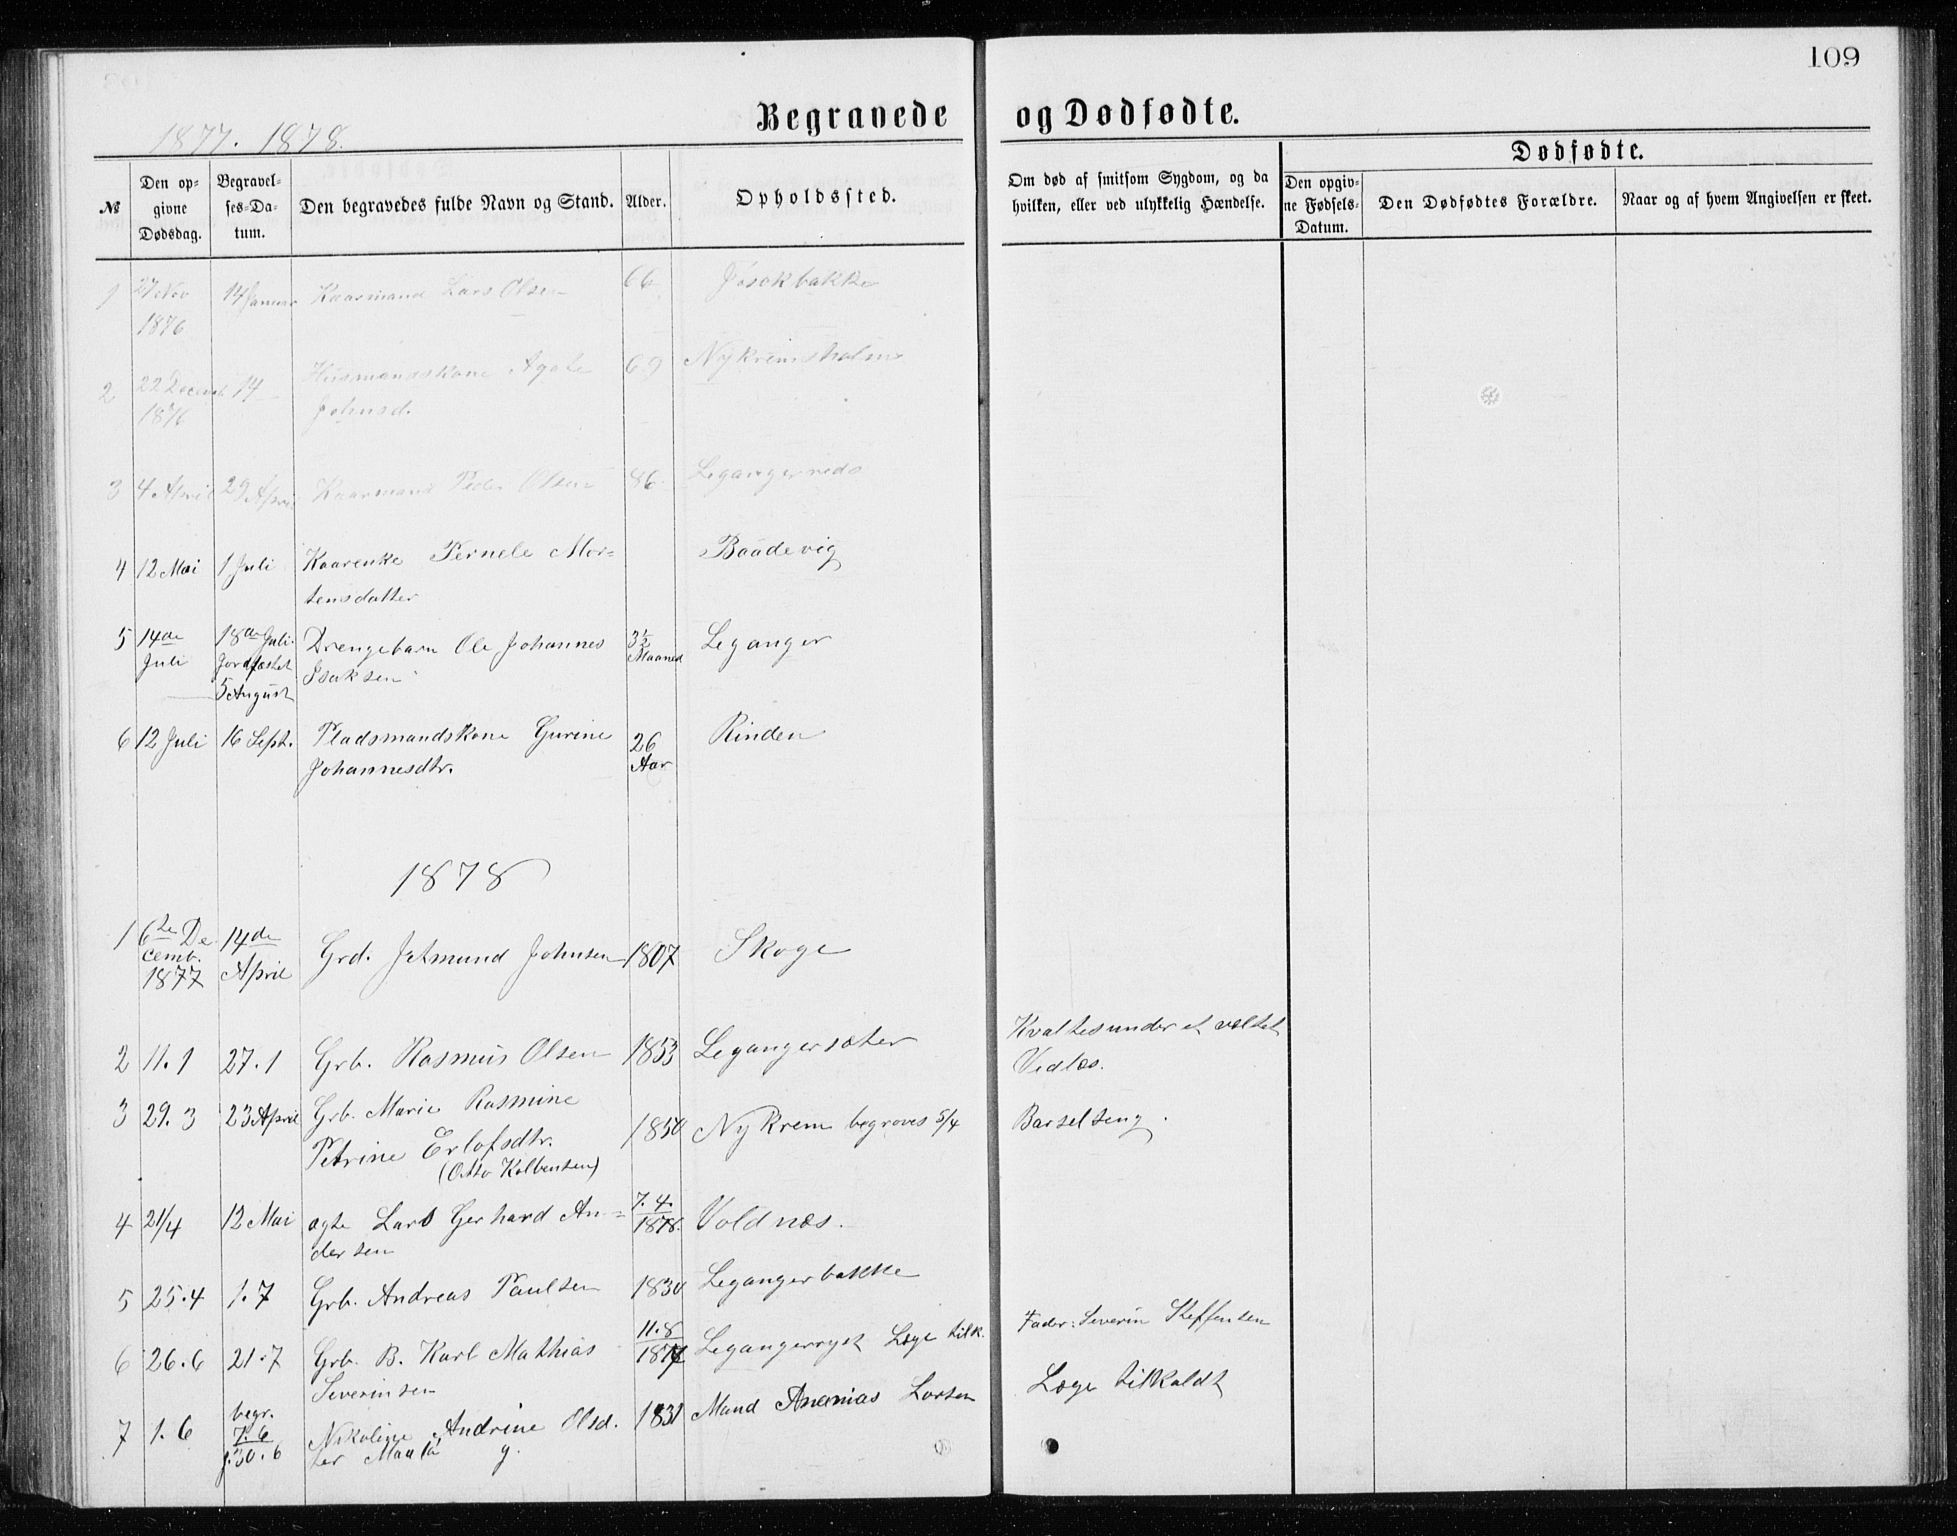 109
Begravede og Dødfødte.
1877. 1878.
Dødfødte.
№
Den op-
givne
Dødsdag.
Begravel-
ses-Da-
tum.
Den begravedes fulde Navn og Stand.
Alder.
Opholdssted.
Om død af smitsom Sygdom, og da
hvilken, eller ved ulykkelig Hændelse.
Den opgiv-
ne Fødsels-
Datum.
Den Dødfødtes Forældre.
Naar og af hvem Angivelsen er skeet.
1 27 Nov 1876 14 Januar Kaarmand Lars Olsen 66 Jøsokbakke
2 22 Decemb 1876 14 Husmandskone Agate 69 Nykremsholm
Johnsd.
3 4 April 29 April Kaarmand Peder Olsen 86 Leganger
4 12 Mai 1 Juli Kaarenke Pernele Mor= Baadevig
tensdatter
5 14de Juli 18de Juli. Jordfæstet 5 August Drengebarn Ole Johannes 3½ Maaned Leganger
Isaksen
6 12 Juli 16 Sept. Pladsmandskone Gurine 26 Aar Rinden
Johannesdtr.
1878
1 6te Decemb. 1877 14de April Grd. Jetmund Johnsen 1807 Skoge
2 11.1 27.1 Grb. Rasmus Olsen 1853 Legangersæter Kvaltes under et væltet
Vedlæs.
3 29.3 23 April Grb. Marie Rasmine
Petrine Erlofsdtr. 1850 Nykrem begraves 5/4 Barselseng.
(Otto Kolbensen)
4 21/4 12 Mai ægte Lars Gerhard An= 7.4. 1878. Voldnæs.
dersen
5 25.4 1.7 Grb. Andreas Paulsen 1830 Legangerbakke
6 26.6 21.7 Grb. B. Karl Mathias 11.8 1874 Legangerryst Læge tilk. Fader: Severin Steffensen
Severinsen
7 1.6 begr. 7.6 j. 30.6 Nikoline Andrine Olsd. 1831 Mand Ananias Larsen Læge tilkaldt